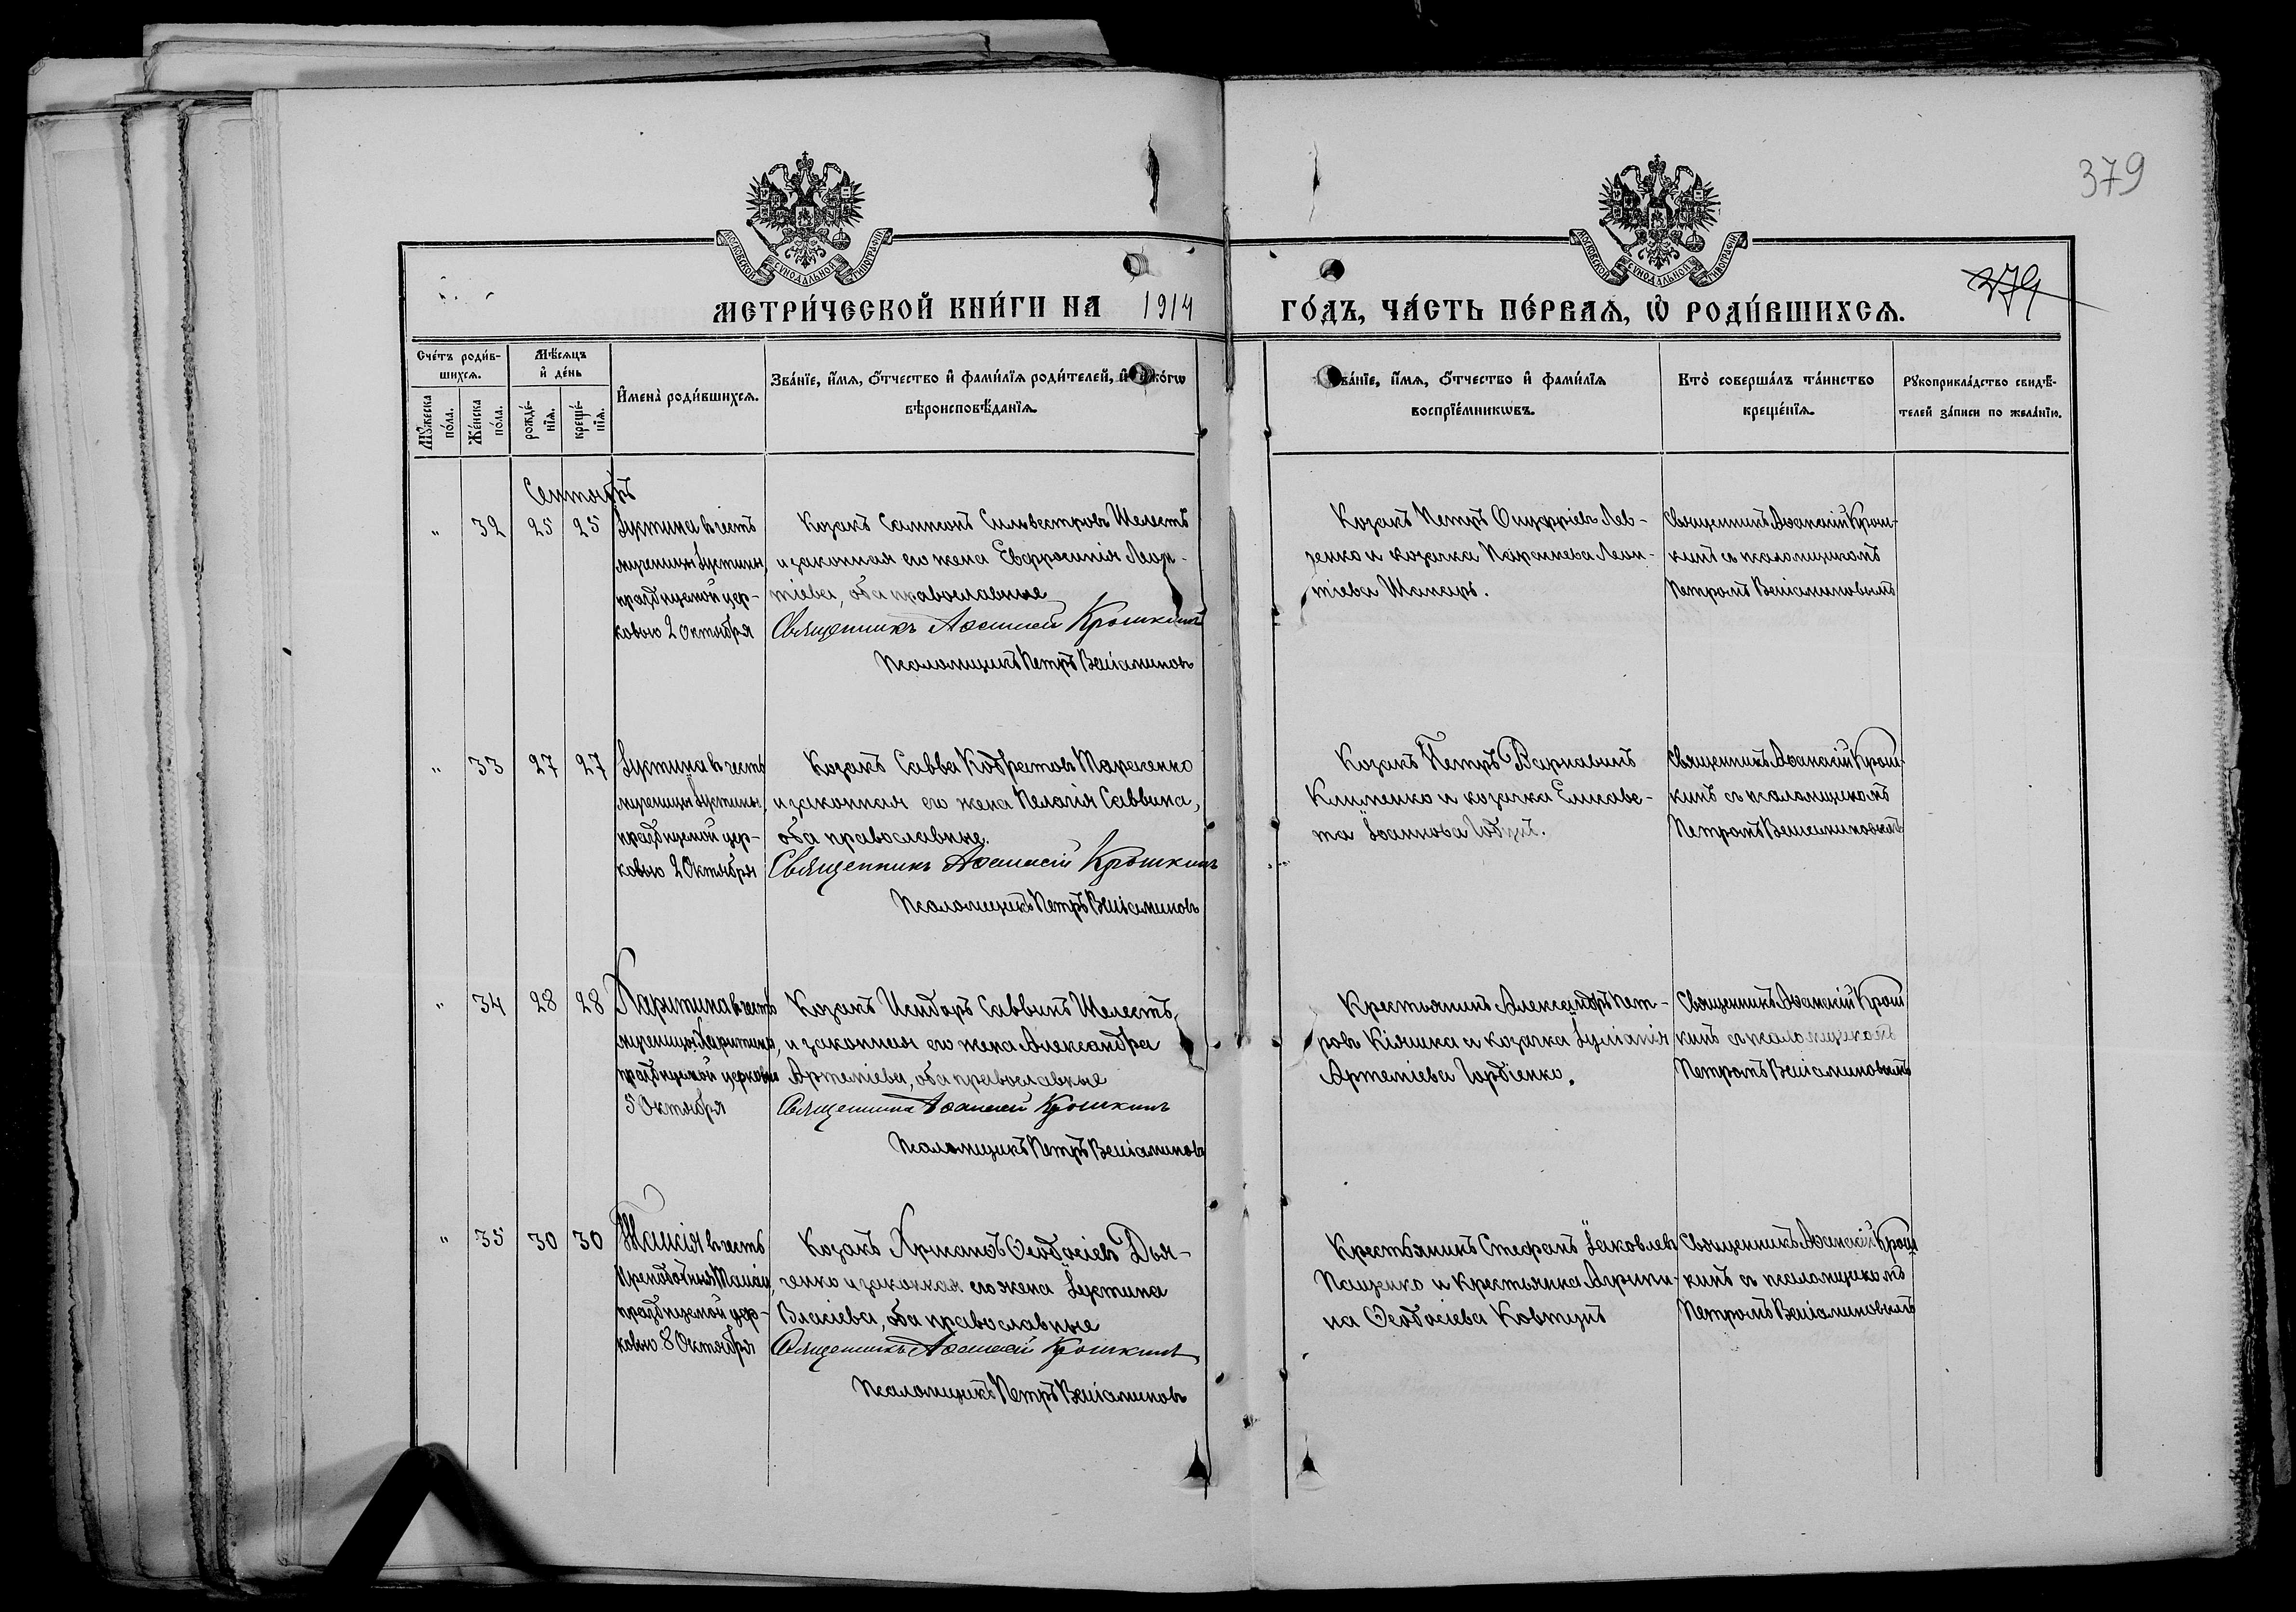 379
279
МОСКОВСКОЙ СУНОДАЛЬНОЙ ТИПОГРАФІИ
МОСКОВСКОЙ СУНОДАЛЬНОЙ ТИПОГРАФІИ
МЕТРИ́ЧЕСКОЙ КНИ́ГИ НА 1914
ГО́ДЪ, ЧА́СТЬ ПЕ́РВАѦ, Ѡ҆ РОДИ́ВШИХСѦ.
Сче́тъ роди́в-
шихсѧ.
Мѣ́сѧцъ
и҆ де́нь
Мꙋ́жеска
по́ла.
Же́нска
по́ла.
рожде́-
нїѧ.
креще́-
нїѧ.
И҆мена̀ роди́вшихсѧ.
Зва́нїе, и҆́мѧ, ѻ҆́тчество и҆ фами́лїѧ роди́телей, и҆ како́гѡ
вѣроисповѣ́данїѧ.
Зва́нїе, и҆́мѧ, ѻ҆́тчество и҆ фами́лїѧ
воспрїе́мникѡвъ.
Кто̀ соверша́лъ та́инство
креще́нїѧ.
Рꙋкоприкла́дство свидѣ́-
телей за́писи по жела́нїю.
Сентябрь
" 32 25 25
Іустина въ честь
мученицы Іустины,
празднуемой цер-
ковью 2 Октября
Козакъ Сампсонъ Сильвестровъ Шелестъ
и законная его жена Евфросинія Леон-
тіева, оба православные
Священникъ Аѳанасій Крошкинъ
Псаломщикъ Петръ Веніаминовъ
Козакъ Петръ Онуфріевъ Лев-
ченко и козачка Параскева Леон-
тіева Шапаръ.
Священникъ Аѳанасій Крош-
кинъ съ псаломщикомъ
Петромъ Веніаминовымъ
" 33 27 27
Іустина въ честь
мученицы Іустины,
празднуемой цер-
ковью 2 Октября
Козакъ Савва Кодратовъ Тарасенко
и законная его жена Пелагія Саввина,
оба православные.
Священникъ Аѳанасій Крошкинъ
Псаломщикъ Петръ Веніаминовъ
Козакъ Петръ Варнавинъ
Клименко и козачка Елисаве-
та Іоаннова
Священникъ Аѳанасій Крош-
кинъ съ псаломщикомъ
Петромъ Веніаминовымъ
" 34 28 28
Харитина въ честь
мученицы Харитины,
празднуемой церковью
5 Октября
Козакъ Исидоръ Саввинъ Шелестъ
и законная его жена Александра
Артеміева, оба православные
Священникъ Аѳанасій Крошкинъ
Псаломщикъ Петръ Веніаминовъ
Крестьянинъ Александръ Пет-
ровъ Кіяшка и козачка Іуліанія
Артеміева Гордіенко.
Священникъ Аѳанасій Крош
кинъ съ псаломщикомъ
Петромъ Веніаминовымъ
" 35 30 30
Таисія въ честь
Преподобныя Таисіи,
празднуемой цер-
ковью 8 Октября
Козакъ Хрисанѳъ Ѳеодосіевъ Дья-
ченко и законная его жена Іустина
Власіева, оба православные
Священникъ Аѳанасій Крошкинъ
Псаломщикъ Петръ Веніаминовъ
Крестьянинъ Стефанъ Іаковлевъ
Пащенко и крестьянка Агрипи-
на Ѳеодосіева Ковтунъ
Священникъ Аѳанасій Крош
кинъ съ псаломщикомъ
Петромъ Веніаминовымъ